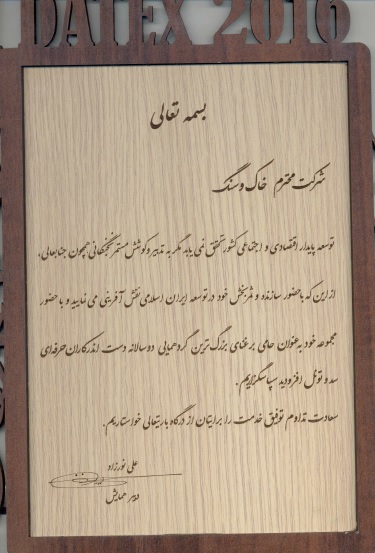 DATEX 2016
بسمه تعالی
شرکت محترم خاک و سنگ
توسعه پایدار اقتصادی و اجتماعی کشور تحقق نمی یابد مگر به تدبیر و کوشش مستمر نخبگانی همچون جنابعالی.
از این که با حضور سازنده و ثمربخش خود در توسعه ایران اسلامی نقش آفرینی می نمایید و با حضور
مجموعه خود به عنوان حامی بر غنای بزرگ ترین گردهمایی دوسالانه دست اندرکاران حرفه‌ای
سد و تونل افزودید سپاسگزاریم.
سعادت تداوم توفیق خدمت را برایتان از درگاه باریتعالی خواستاریم.
علی نورزاد
دبیر همایش